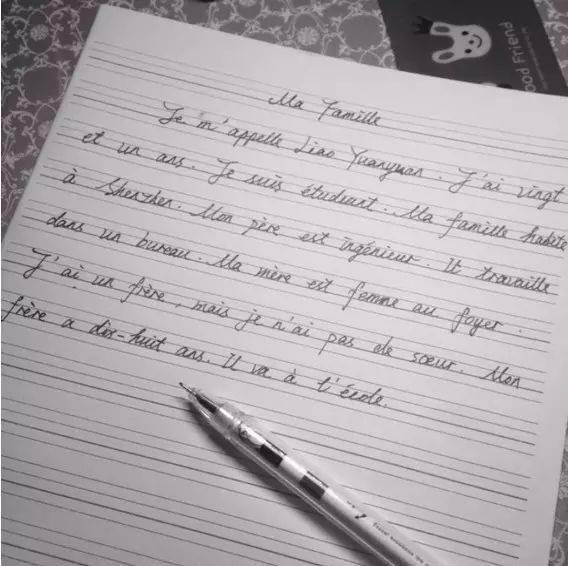 Good Friend
Ma Famille
Je m'appelle Liao Yuanyuan. J'ai vingt
et un ans. Je suis étudiant. Ma famille habite
à Shenzhen. Mon père est ingénieur. Il travaille
dans un bureau. Ma mère est femme au foyer.
J'ai un frère, mais je n'ai pas de sœur. Mon
frère a dix-huit ans. Il va à l'école.